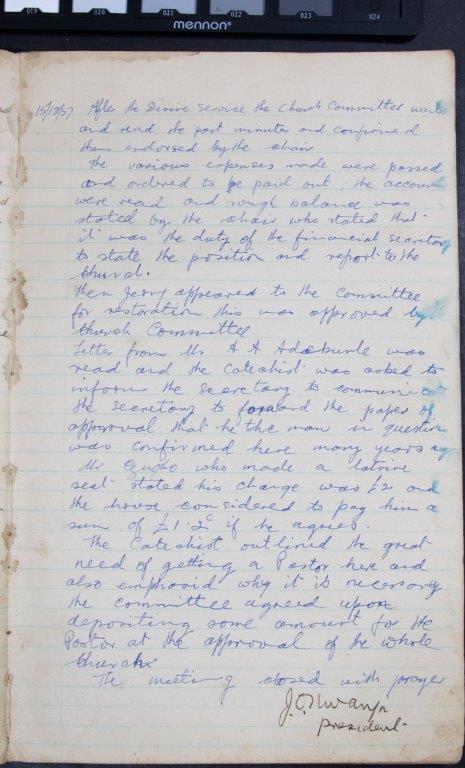 019 020 021 022 023 024
mennon
15/12/57 After the Divine Service the Church Committee
and read the past minutes and confirmed
them endorsed by the chair
The various expenses made were passed
and ordered to be paid out, the account
were read and rough balance was
stated by the chair who stated that
it was the duty of the financial secretary
to state the position and report to the
Church.
Then Jerry appeared to the Committee
for restoration this was approved by
Church Committee
Letter from Mr A A Adebunle was
read and the Catechist was asked to
inform the secretary to
the secretary to forward the paper of
approval that he the man in question
was confirmed here many years
Mr who made a latrine
seat stated his charge was £2 and
the house considered to pay him a
sum of £1. if he agrees.
The Catechist outlined the great
need of getting a Pastor here and
also emphasid why it is necessary
the committee agreed upon
depositing some amount for the
Pastor at the approval of the whole
Church.
The meeting closed with prayer
president.